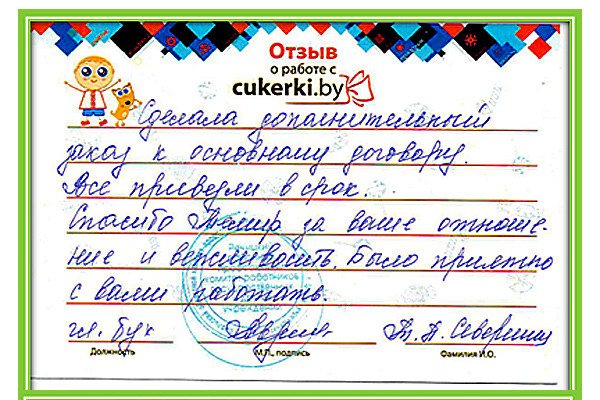 Отзыв
о работе с
cukerki.by
Сделала дополнительный
заказ к основному договору.
Все привезли в срок.
Спасибо за ваше отноше-
ние и вежливость. Было приятно
с вами работать.
гл. бух
Должность М.П., подпись Фамилия И.О.